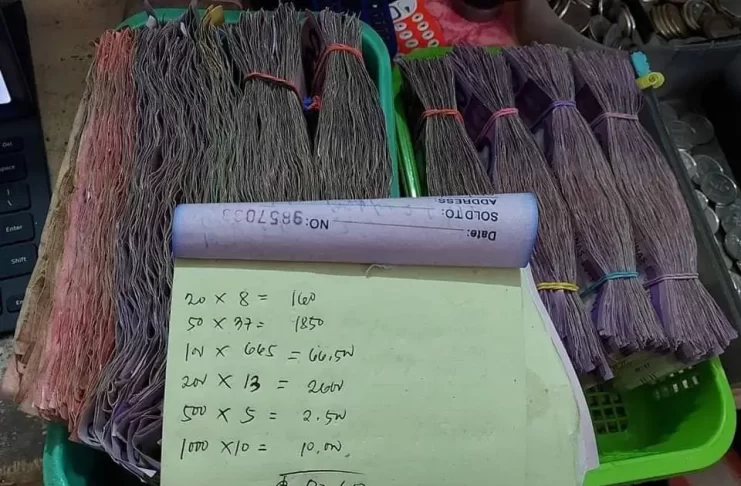 Enter
Shift
ADDRESS:
SOLD TO:
Date:
NO:
20 × 8 = 160
50 × 37 = 1850
100 × 665 = 66,500
200 × 13 = 2600
500 × 5 = 2.500
1000 × 10 = 10.000.